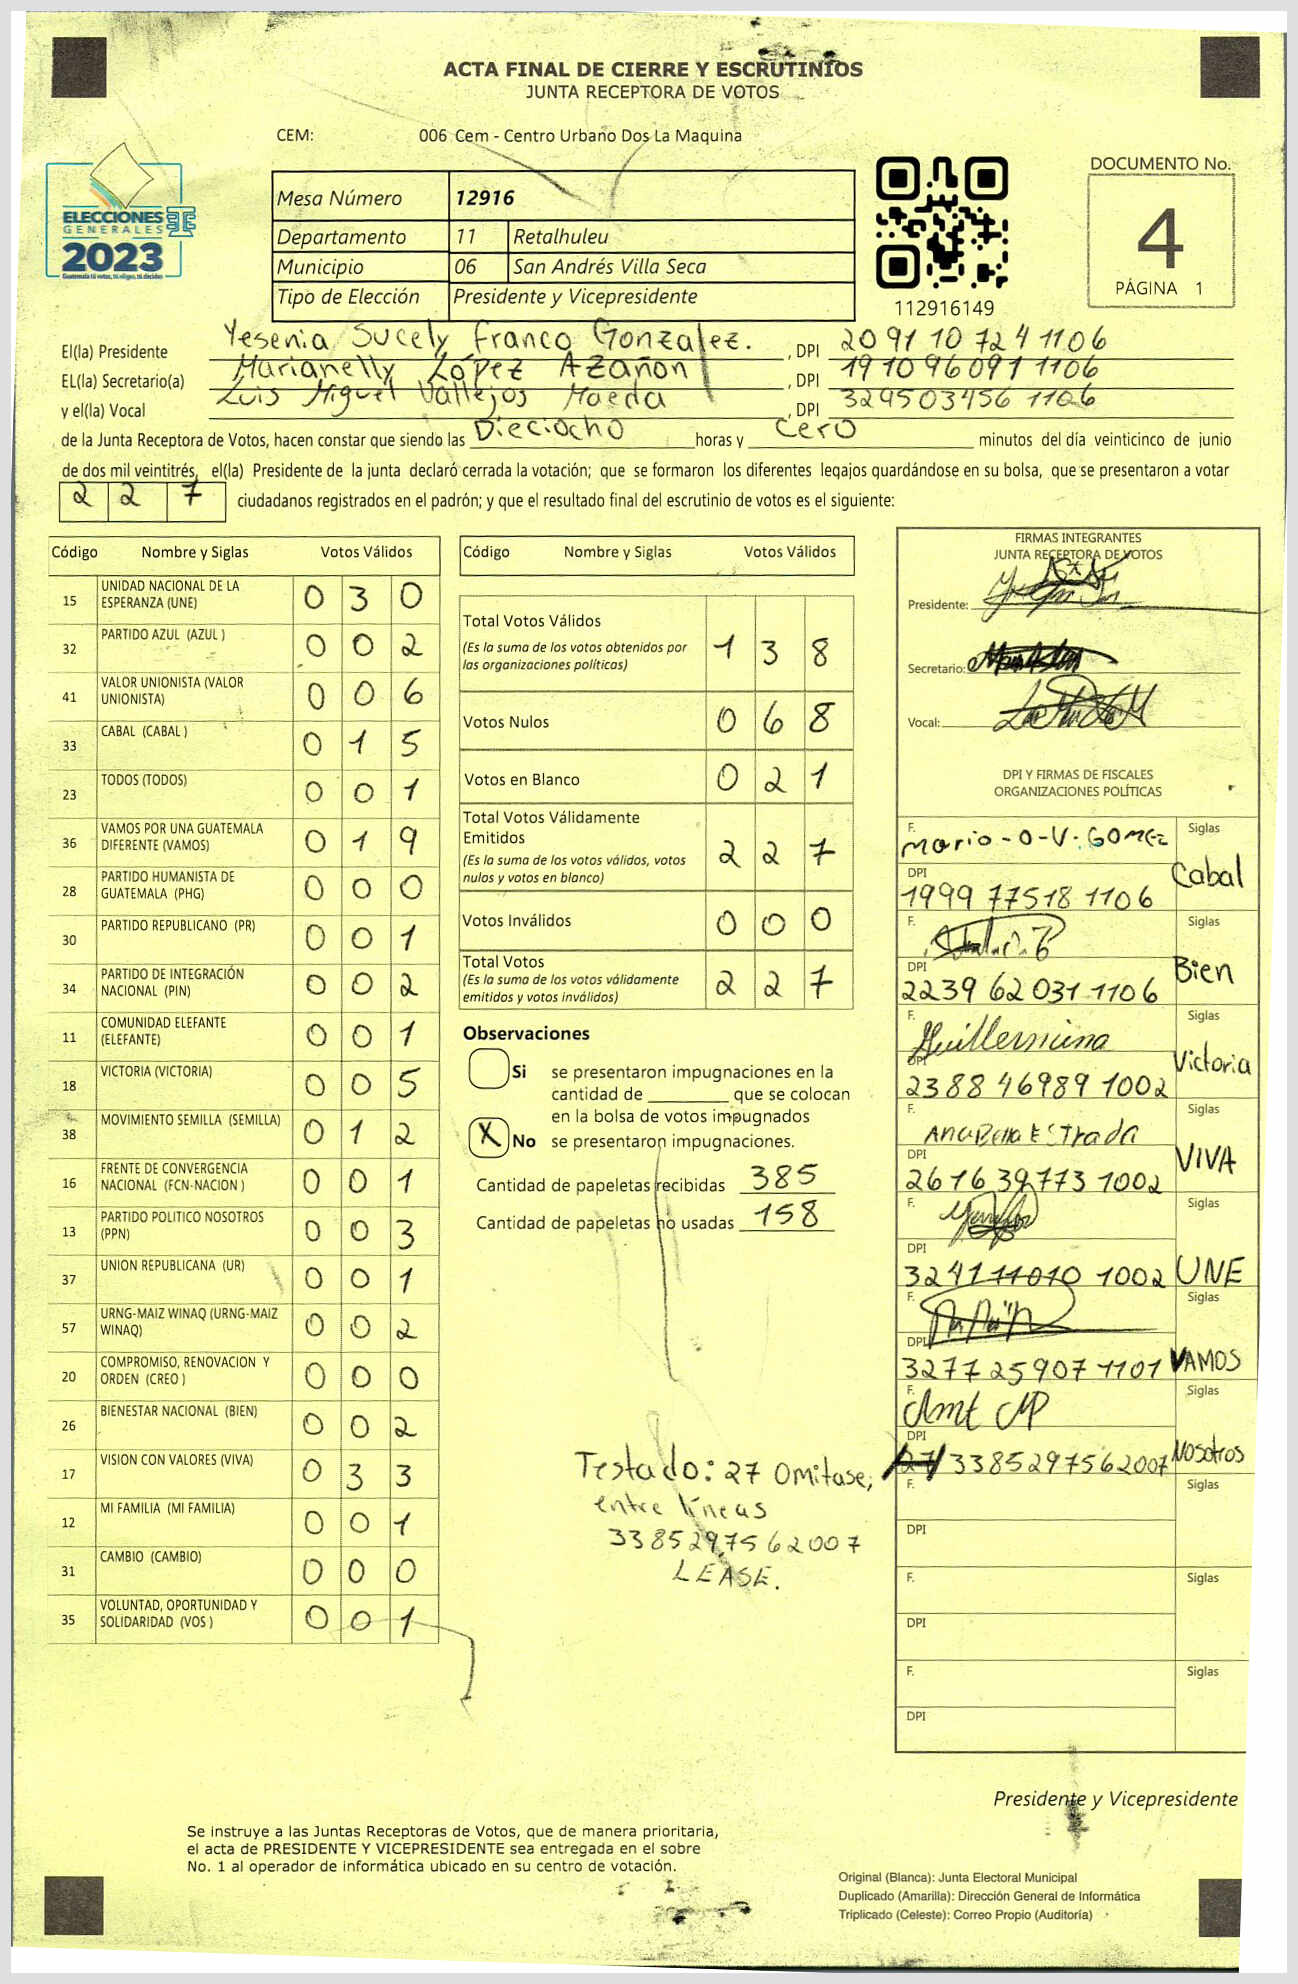 ACTA FINAL DE CIERRE Y ESCRUTINIOS
JUNTA RECEPTORA DE VOTOS
CEM: 006 Cem - Centro Urbano Dos La Maquina
ELECCIONES
GENERALES
2023
Guatemala tú votas, tú eliges, tú decides
TSE
Mesa Número 12916
Departamento 11 Retalhuleu
Municipio 06 San Andrés Villa Seca
Tipo de Elección Presidente y Vicepresidente
112916149
DOCUMENTO No.
4
PÁGINA 1
El(la) Presidente Yesenia Sucely Franco Gonzalez. , DPI 2091 10 724 1106
EL(la) Secretario(a) Marianelly López Azañon , DPI 1910960971 1106
y el(la) Vocal Luis Miguel Vallejos Maeda , DPI 329503456 1106
de la Junta Receptora de Votos, hacen constar que siendo las Dieciocho horas y cero minutos del día veinticinco de junio
de dos mil veintitrés, el(la) Presidente de la junta declaró cerrada la votación; que se formaron los diferentes legajos guardándose en su bolsa, que se presentaron a votar
2 2 7 ciudadanos registrados en el padrón; y que el resultado final del escrutinio de votos es el siguiente:
Código Nombre y Siglas Votos Válidos
15 UNIDAD NACIONAL DE LA ESPERANZA (UNE) 0 3 0
32 PARTIDO AZUL (AZUL ) 0 0 2
41 VALOR UNIONISTA (VALOR UNIONISTA) 0 0 6
33 CABAL (CABAL ) 0 1 5
23 TODOS (TODOS) 0 0 1
36 VAMOS POR UNA GUATEMALA DIFERENTE (VAMOS) 0 1 9
28 PARTIDO HUMANISTA DE GUATEMALA (PHG) 0 0 0
30 PARTIDO REPUBLICANO (PR) 0 0 1
34 PARTIDO DE INTEGRACIÓN NACIONAL (PIN) 0 0 2
11 COMUNIDAD ELEFANTE (ELEFANTE) 0 0 1
18 VICTORIA (VICTORIA) 0 0 5
38 MOVIMIENTO SEMILLA (SEMILLA) 0 1 2
16 FRENTE DE CONVERGENCIA NACIONAL (FCN-NACION ) 0 0 1
13 PARTIDO POLITICO NOSOTROS (PPN) 0 0 3
37 UNION REPUBLICANA (UR) 0 0 1
57 URNG-MAIZ WINAQ (URNG-MAIZ WINAQ) 0 0 2
20 COMPROMISO, RENOVACION Y ORDEN (CREO ) 0 0 0
26 BIENESTAR NACIONAL (BIEN) 0 0 2
17 VISION CON VALORES (VIVA) 0 3 3
12 MI FAMILIA (MI FAMILIA) 0 0 1
31 CAMBIO (CAMBIO) 0 0 0
35 VOLUNTAD, OPORTUNIDAD Y SOLIDARIDAD (VOS ) 0 0 1
Código Nombre y Siglas Votos Válidos
Total Votos Válidos 1 3 8
(Es la suma de los votos obtenidos por
las organizaciones políticas)
Votos Nulos 0 6 8
Votos en Blanco 0 2 1
Total Votos Válidamente
Emitidos 2 2 7
(Es la suma de los votos válidos, votos
nulos y votos en blanco)
Votos Inválidos 0 0 0
Total Votos 2 2 7
(Es la suma de los votos válidamente
emitidos y votos inválidos)
Observaciones
Si se presentaron impugnaciones en la
cantidad de ________ que se colocan
en la bolsa de votos impugnados
X No se presentaron impugnaciones.
Cantidad de papeletas recibidas 385
Cantidad de papeletas no usadas 158
Testado: 27 omitase,
entre líneas
3385297562007
LEASE.
FIRMAS INTEGRANTES
JUNTA RECEPTORA DE VOTOS
Presidente:
Secretario:
Vocal:
DPI Y FIRMAS DE FISCALES
ORGANIZACIONES POLÍTICAS
F. Mario-O-V.GOMEZ Siglas
DPI 1999 77518 1106 Cabal
F. Siglas
DPI 2239 62031 1106 Bien
F. Guillermina Siglas
DPI 2388 46989 1002 Victoria
F. Anabella Estrada Siglas
DPI 2616 39773 1002 VIVA
F. Siglas
DPI 3241 11010 1002 UNE
F. Siglas
DPI 3277 25907 1101 VAMOS
F. Siglas
DPI 27 3385297562007 Nosotros
F. Siglas
DPI
F. Siglas
DPI
F. Siglas
DPI
Presidente y Vicepresidente
Se instruye a las Juntas Receptoras de Votos, que de manera prioritaria,
el acta de PRESIDENTE Y VICEPRESIDENTE sea entregada en el sobre
No. 1 al operador de informática ubicado en su centro de votación.
Original (Blanca): Junta Electoral Municipal
Duplicado (Amarilla): Dirección General de Informática
Triplicado (Celeste): Correo Propio (Auditoría)